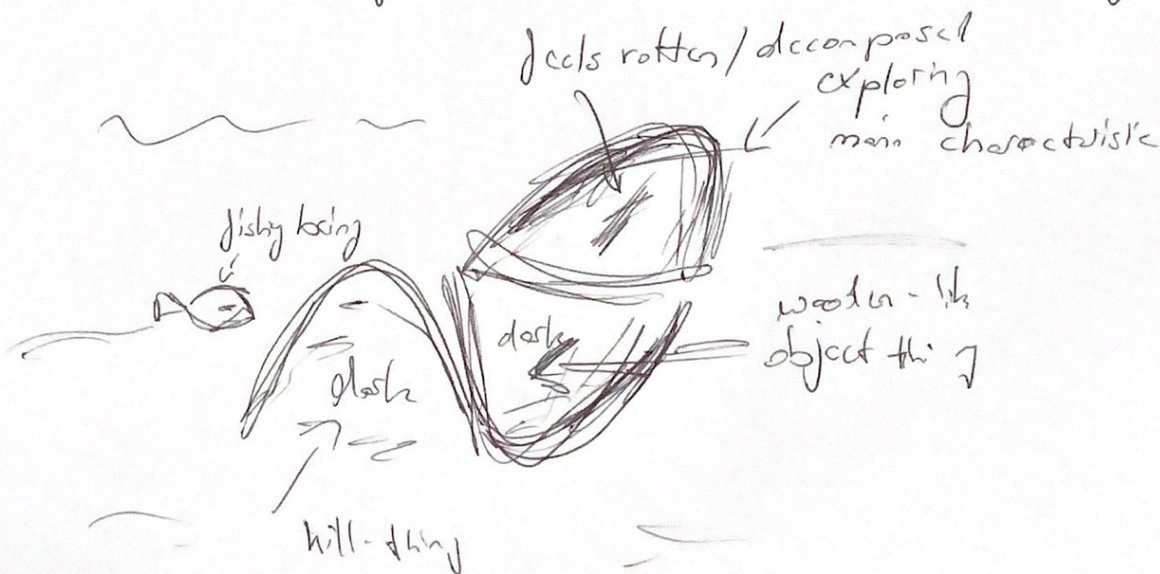 feels rotten/decomposed
exploring
main characteristic
fishy being
wooden-like
object thing
dark
dark
hill-thing